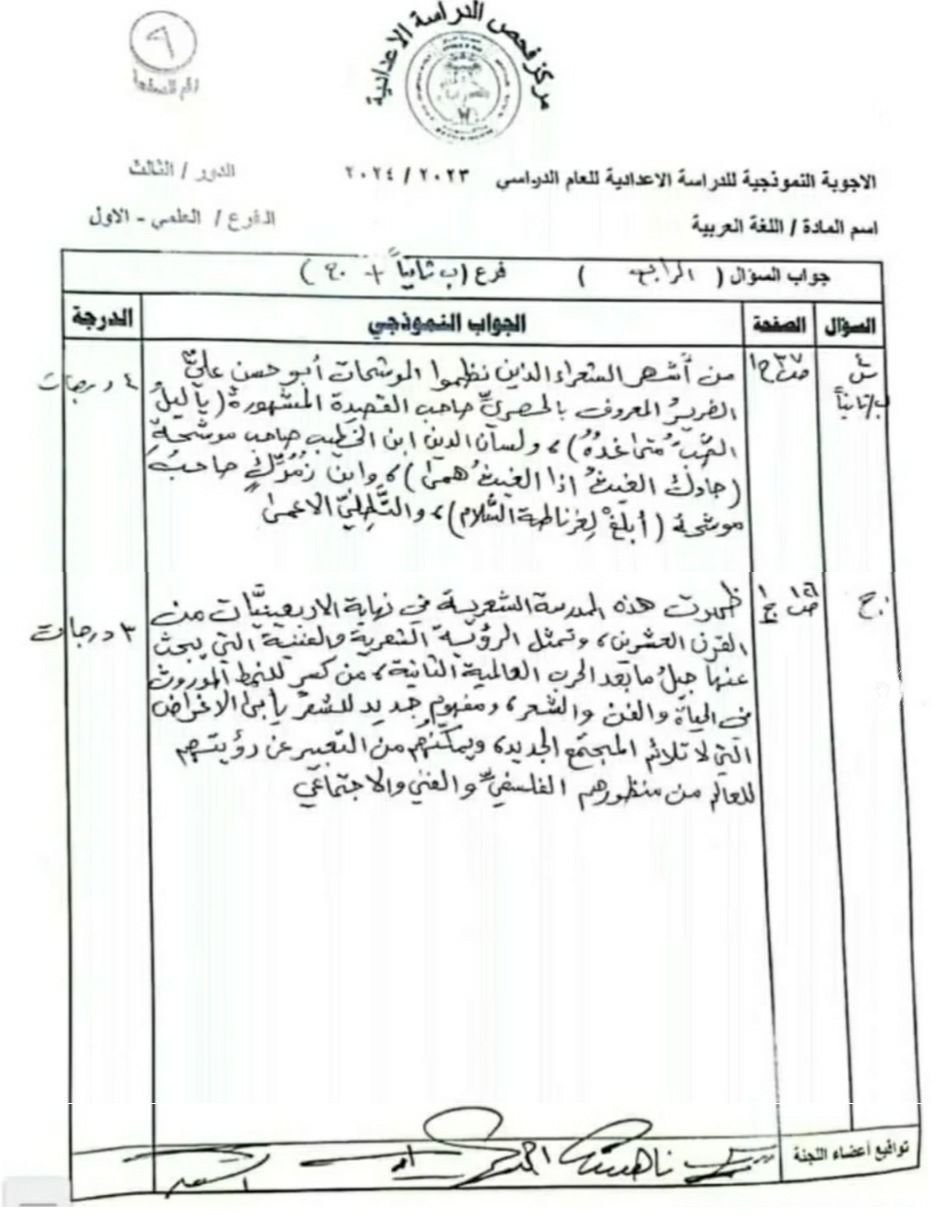 ٩
رقم الصفحة
مركز فحص الدراسة الاعدادية
الاجوبة النموذجية للدراسة الاعدادية للعام الدراسي ٢٠٢٣ / ٢٠٢٤ الدور / الثالث
اسم المادة / اللغة العربية الفرع / العلمي - الاول
جواب السؤال ( الرابع ) فرع ( ب ثانياً + ج )
السؤال الصفحة الجواب النموذجي الدرجة
س٤ ص٣٧ ج١ من أشهر الشعراء الذين نظموا الموشحات أبو حسن عليٌّ ٤ درجات
ب/ثانياً الضريرُ المعروف بالحصريِّ صاحب القصيدة المشهورة (يا ليلُ
الصَّبُّ متى غدُهُ)، ولسان الدين ابن الخطيب صاحب موشحةِ
(جادك الغيثُ اذا الغيثُ همى)، وابن زُمْرُكٍ صاحبُ
موشحة (أبلغْ لِغرناطة السَّلام)، والتُّطِيليّ الاعمى
ج. ج١ ظهرت هذه المدرسة الشعرية في نهاية الاربعينيَّات من
القرن العشرين، وتمثل الرؤية الشعرية والفنية التي يبحث ٣ درجات
عنها جيلُ ما بعد الحرب العالمية الثانية، من كسرٍ للنمط الموروث
في الحياة والفن والشعر، ومفهوم جديد للشعر يأبى الاغراض
التي لا تلائم المجتمع الجديد، ويمكّنهُم من التعبير عن رؤيتهم
للعالم من منظورهم الفلسفيّ والفني والاجتماعيّ
تواقيع أعضاء اللجنة